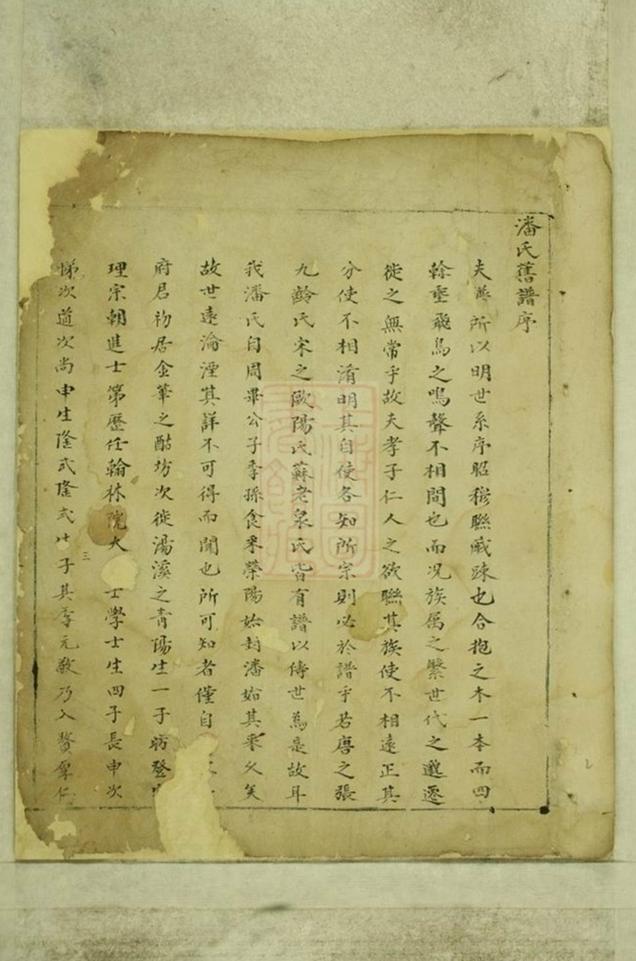 潘氏舊譜序
夫譜所以明世系序昭穆聯戚疎也合抱之木一本而四
幹壑飛鳥之鳴聲不相間也而况族属之繁世代之遷
徙之無常乎故夫孝子仁人之欲聯其族使不相遠正其
分使不相淆明其自使各知所宗則必於譜乎若唐之張
九齡氏宋之歐陽氏蘇老泉氏皆有譜以傳世為是故耳
我潘氏自周畢公子季孫食采滎陽始封潘始其來久矣
故世遠淪湮其詳不可得而聞也所可知者僅自
府君初居金華之酤坊次徙湯溪之青陽生一子昉登
理宗朝進士第歷任翰林院大士學士生四子長申次
悌次道次尚申生隆弍隆弍廿子其孝元敬乃入贅
三